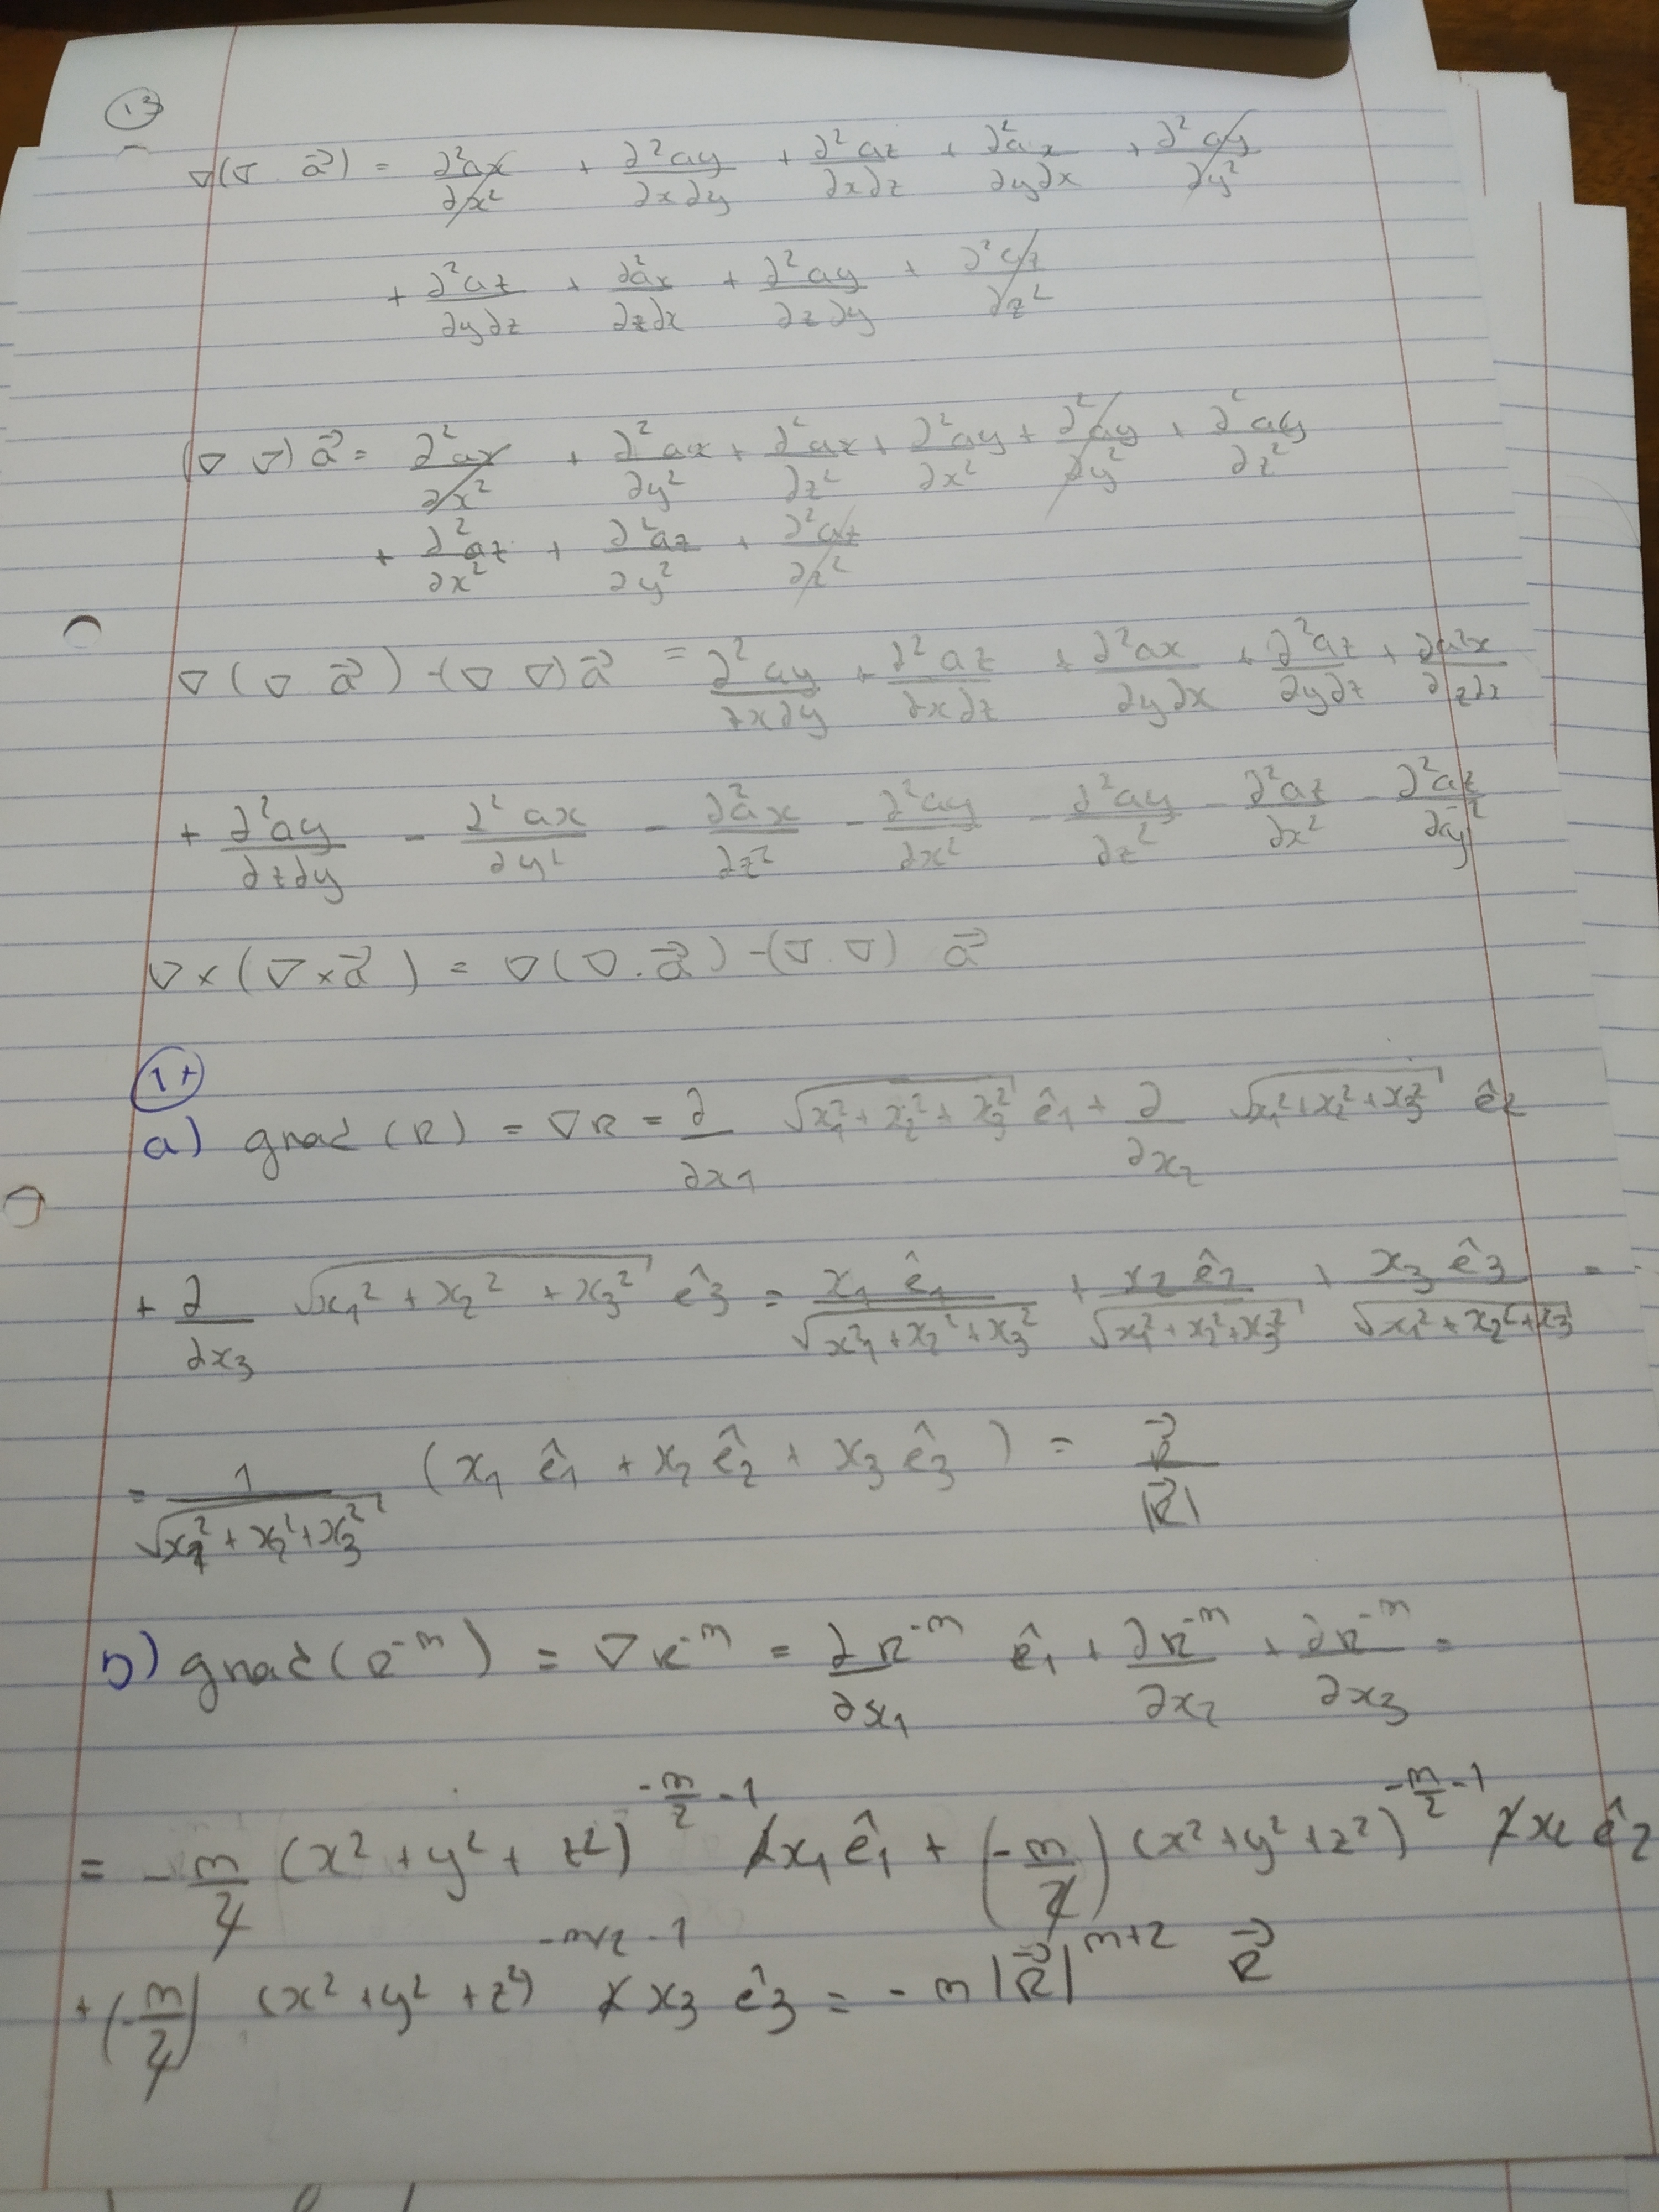 13
∇(∇ a⃗) = ∂²ax/∂x² + ∂²ay/∂x∂y + ∂²az/∂x∂z + ∂²ax/∂y∂x + ∂²ay/∂y²
+ ∂²az/∂y∂z + ∂²ax/∂z∂x + ∂²ay/∂z∂y + ∂²az/∂z²
(∇ ∇) a⃗ = ∂²ax/∂x² + ∂²ax/∂y² + ∂²ax/∂z² + ∂²ay/∂x² + ∂²ay/∂y² + ∂²ay/∂z²
+ ∂²az/∂x² + ∂²az/∂y² + ∂²az/∂z²
∇(∇ a⃗) - (∇ ∇) a⃗ = ∂²ay/∂x∂y + ∂²az/∂x∂z + ∂²ax/∂y∂x + ∂²az/∂y∂z + ∂a²x/∂z∂x
+ ∂²ay/∂z∂y - ∂²ax/∂y² - ∂²ax/∂z² - ∂²ay/∂x² - ∂²ay/∂z² - ∂²az/∂x² - ∂²az/∂y²
∇×(∇×a⃗) = ∇(∇.a⃗) - (∇.∇) a⃗
a) grad (R) = ∇R = ∂/∂x₁ √(x₁²+x₂²+x₃²) ê₁ + ∂/∂x₂ √(x₁²+x₂²+x₃²) ê₂
+ ∂/∂x₃ √(x₁²+x₂²+x₃²) ê₃ = x₁ ê₁/√(x₁²+x₂²+x₃²) + x₂ ê₂/√(x₁²+x₂²+x₃²) + x₃ ê₃/√(x₁²+x₂²+x₃²) =
= 1/√(x₁²+x₂²+x₃²) (x₁ ê₁ + x₂ ê₂ + x₃ ê₃) = R⃗/|R⃗|
b) grad (R⁻ᵐ) = ∇R⁻ᵐ = ∂R⁻ᵐ/∂x₁ ê₁ + ∂R⁻ᵐ/∂x₂ + ∂R⁻ᵐ/∂x₃ =
= -m/2 (x²+y²+z²)^(-m/2 -1) 2x₁ ê₁ + (-m/2) (x²+y²+z²)^(-m/2 -1) 2x₂ ê₂
+ (-m/2) (x²+y²+z²)^(-m/2 -1) 2x₃ ê₃ = -m |R⃗|^(m+2) R⃗